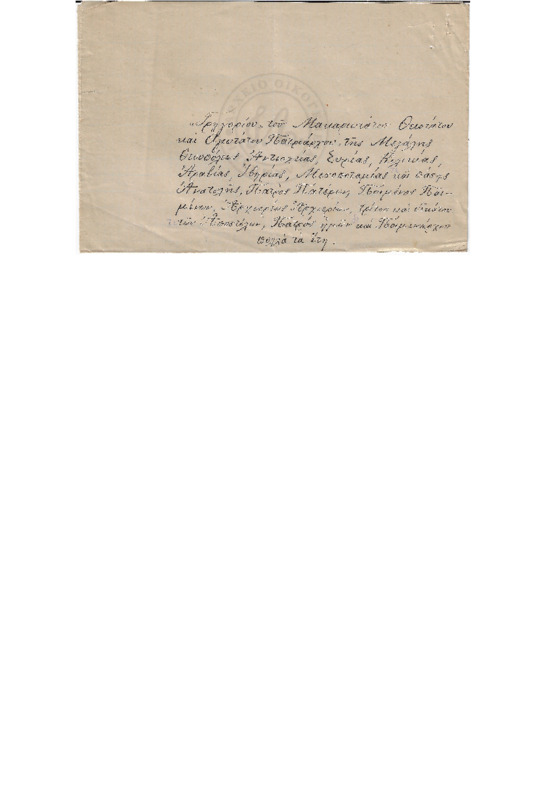 „Γρηγορίου τοῦ Μακαριωτάτου Θειοτάτου
καὶ Ἁγιωτάτου Πατριάρχου τῆς Μεγάλης
Θεουπόλεως Ἀντιοχείας, Συρίας, Κιλικίας,
Ἀραβίας, Ἰβηρίας, Μεσοποταμίας καὶ πάσης
Ἀνατολῆς, Πατρὸς Πατέρων, Ποιμένος Ποι-
μένων, Ἀρχιερέως Ἀρχιερέων, τρίτου καὶ δεκάτου
τῶν Ἀποστόλων, Πατρὸς ἡμῶν καὶ Ποιμενάρχου
πολλὰ τὰ ἔτη.